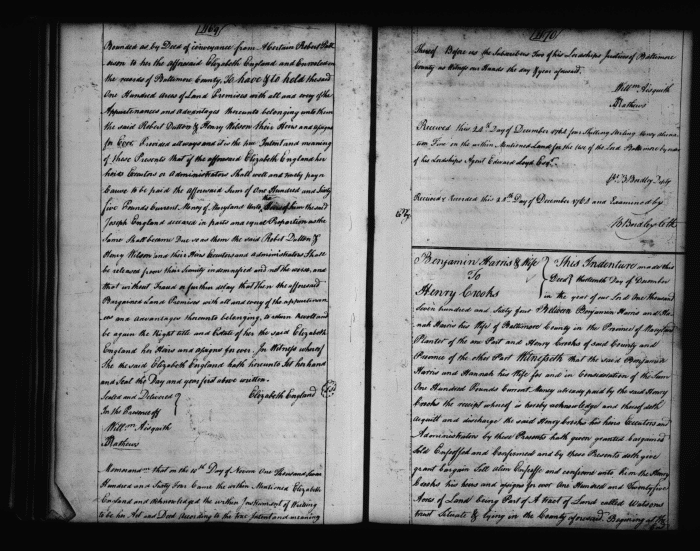 1869
Bounded as by Deed of conveyance from A Certain Robert
to her the afforesaid Elizabeth England and Enrolled on
the records of Baltimore County. To have & to hold the said
One Hundred Acres of Land Premises with all and every of the
Appurtenances and advantages thereunto belonging unto them
the said Robert Dutton & Henry Wilson their Heirs and assigns
for Ever. Provided always and it is the true Intent and meaning
of these Presents that if the afforesaid Elizabeth England her
heirs Executors or administrators Shall well and truly pay or
Cause to be paid the afforesaid Sum of One Hundred and Sixty
five Pounds Current Money of Maryland Unto the said
Joseph England in parts and equal Proportion as the
Same Shall become Due so as them the said Robert Dutton &
Henry Wilson and their Heirs Executors and administrators Shall
be released from their Surity indemnifyed and not the worse, and
that without Fraud or further delay that then the afforesaid
Bargained Land Premises with all and every of the appurtenan-
ces and advantages thereunto belonging, to return Revolt and
be again the Right title and Estate of her the said Elizabeth
England her Heirs and assigns for ever. In Witness whereof
She the said Elizabeth England hath hereunto Set her hand
and Seal the Day and year first above written.
Sealed and Delivered
Elizabeth England
In the Presence of
Willm Aisquith
Mathews
Memorandum that on the 10th Day of Novem One Thousand Seven
Hundred and Sixty Four Came the within Mentioned Elizabeth
England and acknowledged the within Instrument of Writing
to be her Act and Deed According to the true Intent and meaning
1870
thereof Before us the Subscribers Two of his Lordships Justices of Baltimore
County as Witness our Hands the day & year aforesaid.
Willm Aisquith
Mathews
Received this 24th Day of December 1764 Shilling Sterling
Five on the within Mentioned Land for the Use of the Lord by
of his Lordships Agent Edward Loyd Esqr.
Bordley
Received & Recorded this 24th Day of December 1764 and Examined by
B Bordley Clk
Benjamin Harris & Wife
To
Henry Crooks
Deed
This Indenture made this
thirteenth Day of December
in the year of our Lord One Thousand
Seven hundred and Sixty four Between Benjamin Harris and Han-
nah Harris his Wife of Baltimore County in the Province of Maryland
Planter of the one Part and Henry Crooks of said County and
Province of the other Part Witnesseth that the said Benjamin
Harris and Hannah his Wife for and in Consideration of the Sum
One Hundred Pounds Current Money already paid by the said Henry
Crooks the receipt whereof is hereby acknowledge and thereof doth
acquitt and discharge the said Henry Crooks his heirs Executors and
Administrators by these Presents hath given granted bargained
Sold Enfeoffed and Confirmed and by these Presents doth give
grant bargain Sell alien Enfeoffe and confirm unto him the Henry
Crooks his heirs and assigns for ever One Hundred and Twentyfive
Acres of Land being Part of A Tract of Land called Watsons
trust Situate & lying in the County aforesaid. Begining at